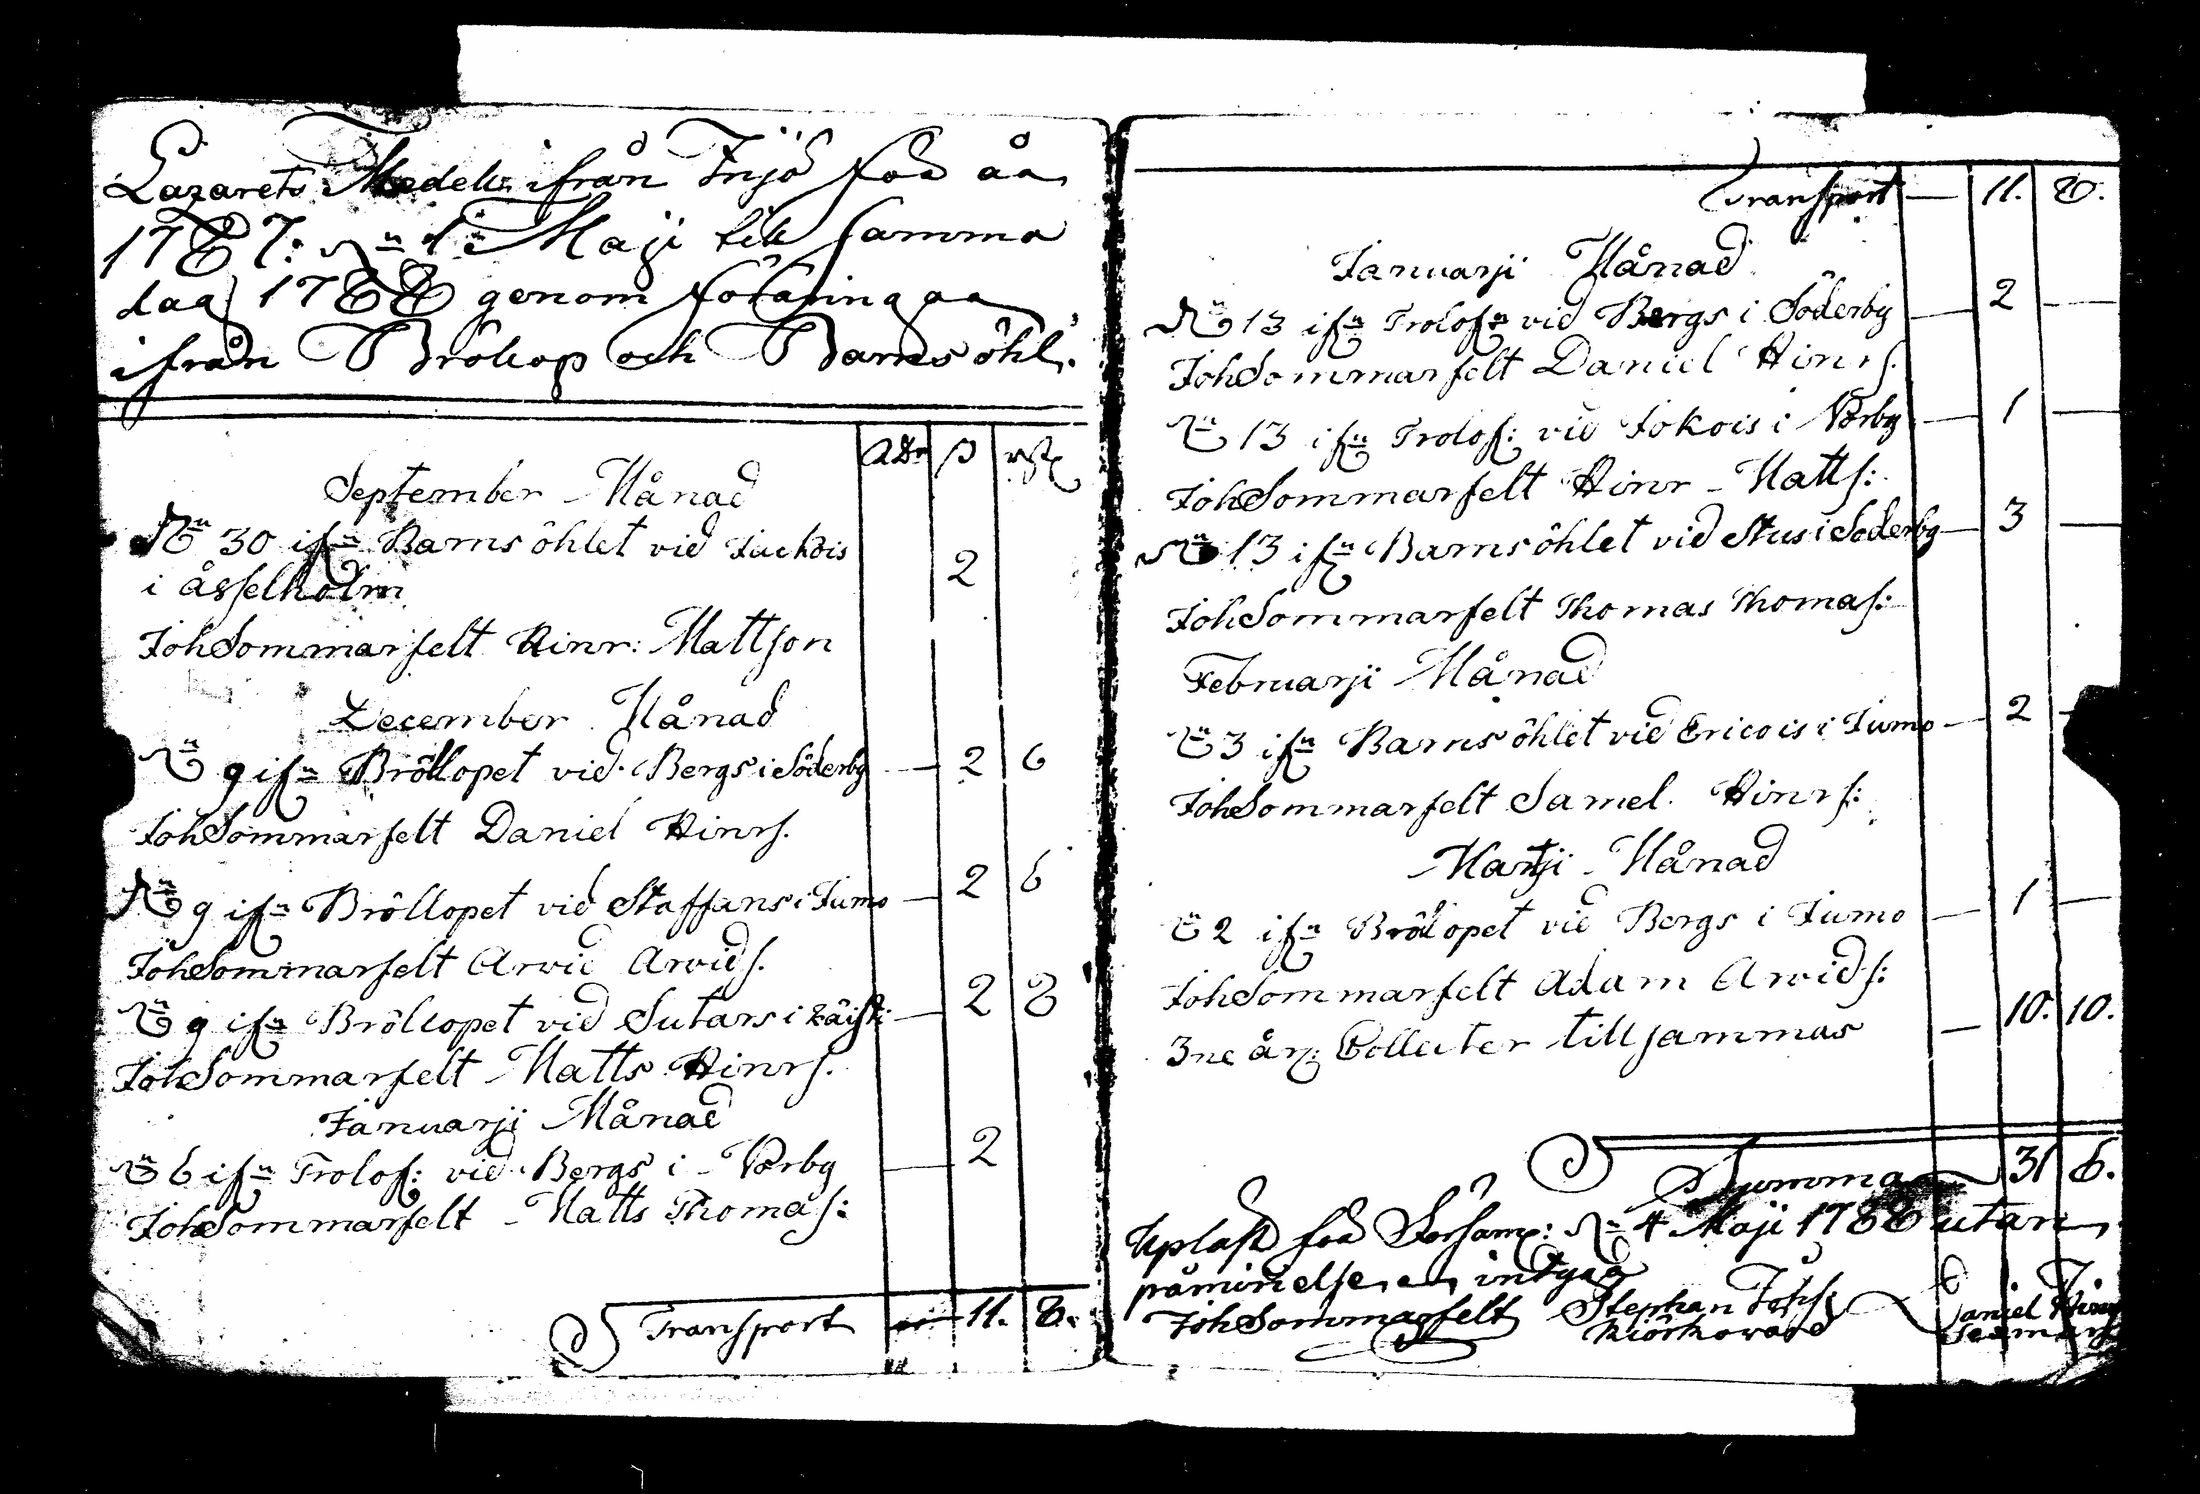 Lazarets Medel ifrån Injö för åa
1787: dn 1n Maji till samma
dag 1788 genom
ifrån Brölop och Barnsöhl.
RDr ß rst
September Månad
dn 30 ifn Barnsöhlet vid
i åsselholm 2
JohSommarfelt Hinr: Mattson
December Månad
dn 9 ifn Bröllopet vid Bergs i Söderby — 2 6
JohSommarfelt Daniel Hinrs.
dn 9 ifn Bröllopet vid Staffans i Jumo — 2 6
JohSommarfelt Arvid Arvids.
dn 9 ifn Bröllopet vid Sutars i — 2 8
JohSommarfelt Matts Hinrs.
Januarji Månad
dn 6 ifn Trolof: vid Bergs i Norby — 2
JohSommarfelt Matts Thomas:
Transport 11. 8.
Transport — 11. 8.
Januarji Månad
dn 13 ifn Trolofn vid Bergs i Söderby — 2 —
JohSommarfelt Daniel Hinrs.
dn 13 ifn Trolof: vid Jokois i Norby — 1 —
JohSommarfelt Hinr Matts:
dn 13 ifn Barnsöhlet vid Stus i Söderby — 3 —
JohSommarfelt Thomas Thomas:
Februarji Månad
dn 3 ifn Barnsöhlet vid Ericois i Jumo — 2 —
JohSommarfelt Samel. Hinrs:
Martji Månad
dn 2 ifn Brölopet vid Bergs i Jumo — 1 —
JohSommarfelt Adam Arvids:
3ne år: Collecter tillsammas — 10. 10.
Summa 31 6.
Upläst för Församl: dn 4 Maji 1788 utan
påminelse, intygar
JohSommarfelt Stephan Daniel Hinrs
Kiörkowärd